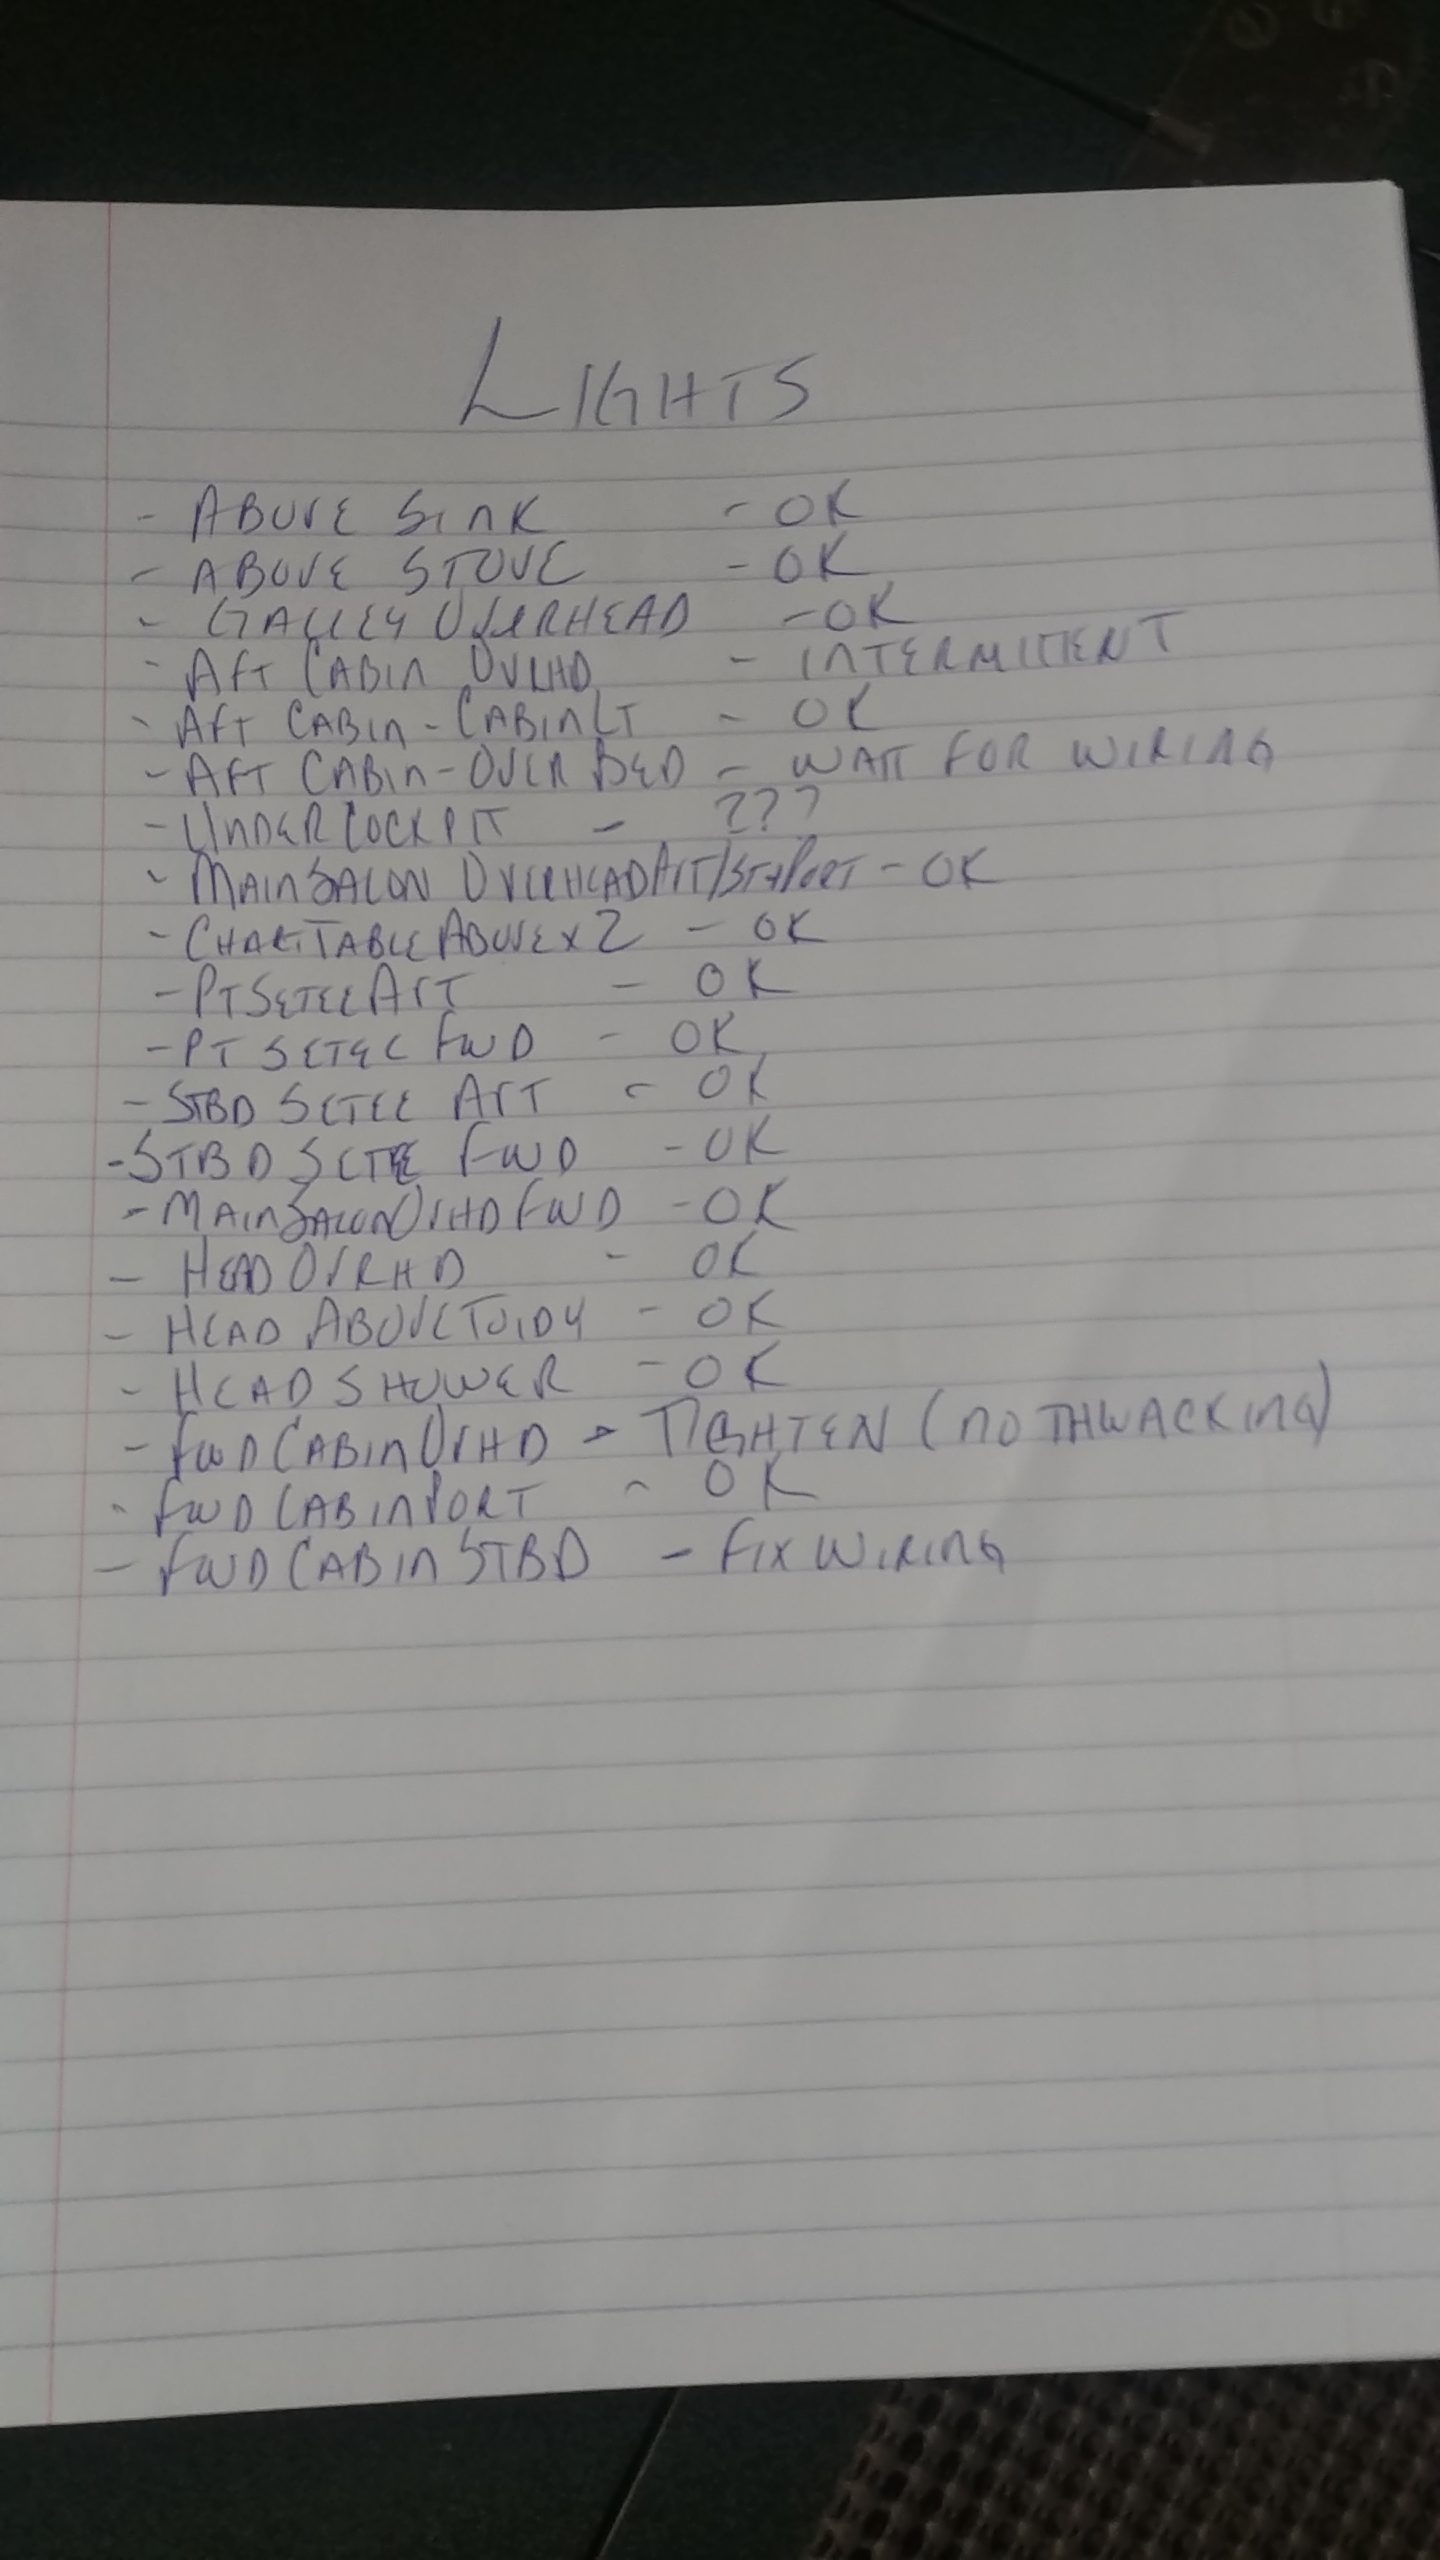 LIGHTS
- ABOVE SINK - OK
- ABOVE STOVE - OK
- GALLEY OVERHEAD - OK
- AFT CABIN OVRHD - INTERMITTENT
- AFT CABIN - CABINLT - OK
- AFT CABIN - OVER BED - WAIT FOR WIRING
- UNDER COCKPIT - ???
- MAIN SALON OVERHEAD AFT/ - OK
- CHART TABLE ABOVE x 2 - OK
- PT SETEE AFT - OK
- PT SETEE FWD - OK
- STBD SETEE AFT - OK
- STBD SETEE FWD - OK
- MAIN SALON OVHD FWD - OK
- HEAD OVRHD - OK
- HEAD ABOVE TOIDY - OK
- HEAD SHOWER - OK
- FWD CABIN OVHD - TIGHTEN (NO THWACKING)
- FWD CABIN PORT - OK
- FWD CABIN STBD - FIX WIRING